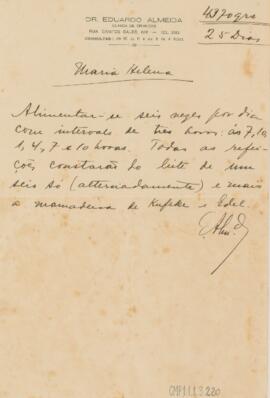 DR. EDUARDO ALMEIDA
CLINICA DE CREANÇAS
RUA SANTOS SALES
4370 grs
25 Dias
Maria Helena
Alimentar-se seis vezes por dia
com intervalo de tres horas: ás 7, 10,
1, 4, 7 e 10 horas. Todas as refei-
ções constarão do leite de um
seio só (alternadamente) e mais
a mamadeira de Kufeke e Edel.